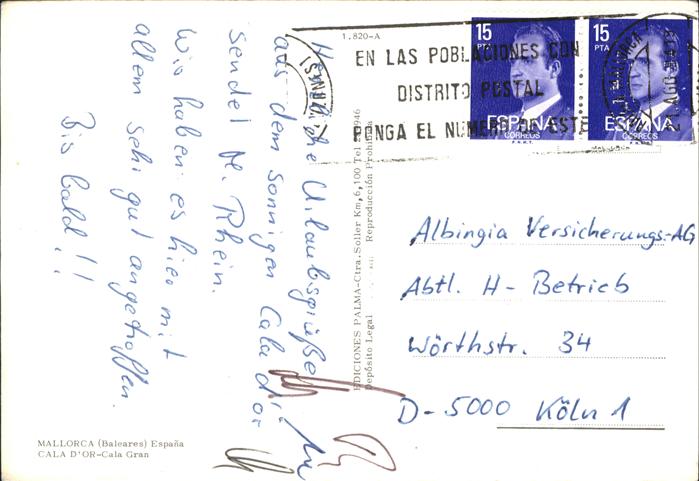 Herzliche Urlaubsgrüße
aus dem sonnigen Cala d'or
sendet H. Rhein.
Wir haben es hier mit
allem sehr gut angetroffen.
Bis bald!!
MALLORCA (Baleares) España
CALA D'OR-Cala Gran
1.820-A
EDICIONES PALMA-Ctra. Soller Km, 6,100 Tel
Depósito Legal
Reproducción Prohibida
EN LAS POBLACIONES CON
DISTRITO POSTAL
PONGA EL NUMERO DE ESTE
15
PTA
ESPAÑA
CORREOS
F.N.M.T.
15
PTA
ESPAÑA
CORREOS
F.N.M.T.
MALLORCA
AGO
Albingia Versicherungs-AG
Abtl. H-Betrieb
Wörthstr. 34
D-5000 Köln 1